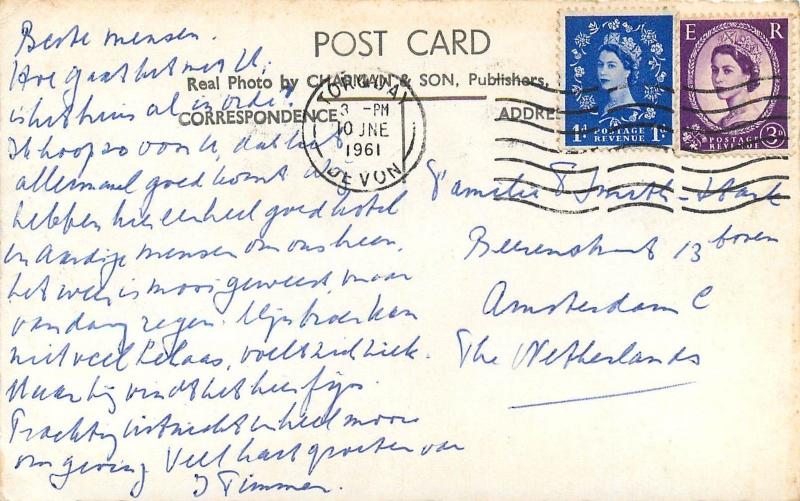 POST CARD
Real Photo by CHAPMAN & SON, Publishers,
CORRESPONDENCE
ADDRE
TORQUAY
3 - PM
10 JNE
1961
DEVON
1D POSTAGE REVENUE 1D
E R
POSTAGE REVENUE 3D
Beste mensen.
Hoe gaat het met U,
is het huis al in orde?
Ik hoop zo voor U, dat het
allemaal goed komt. Wij
hebben hier een heel goed hotel
en aardige mensen om ons heen.
het weer is mooi geweest, maar
vandaag regen. Mijn broer kan
niet veel helaas, voelt zich ziek.
Maar hij vindt het hier fijn.
Prachtig uitzicht en heel mooie
omgeving. Veel hart. groeten van
J Timmer.
Familie Smith-Stark
Beerenstraat 13 boven
Amsterdam C
The Netherlands